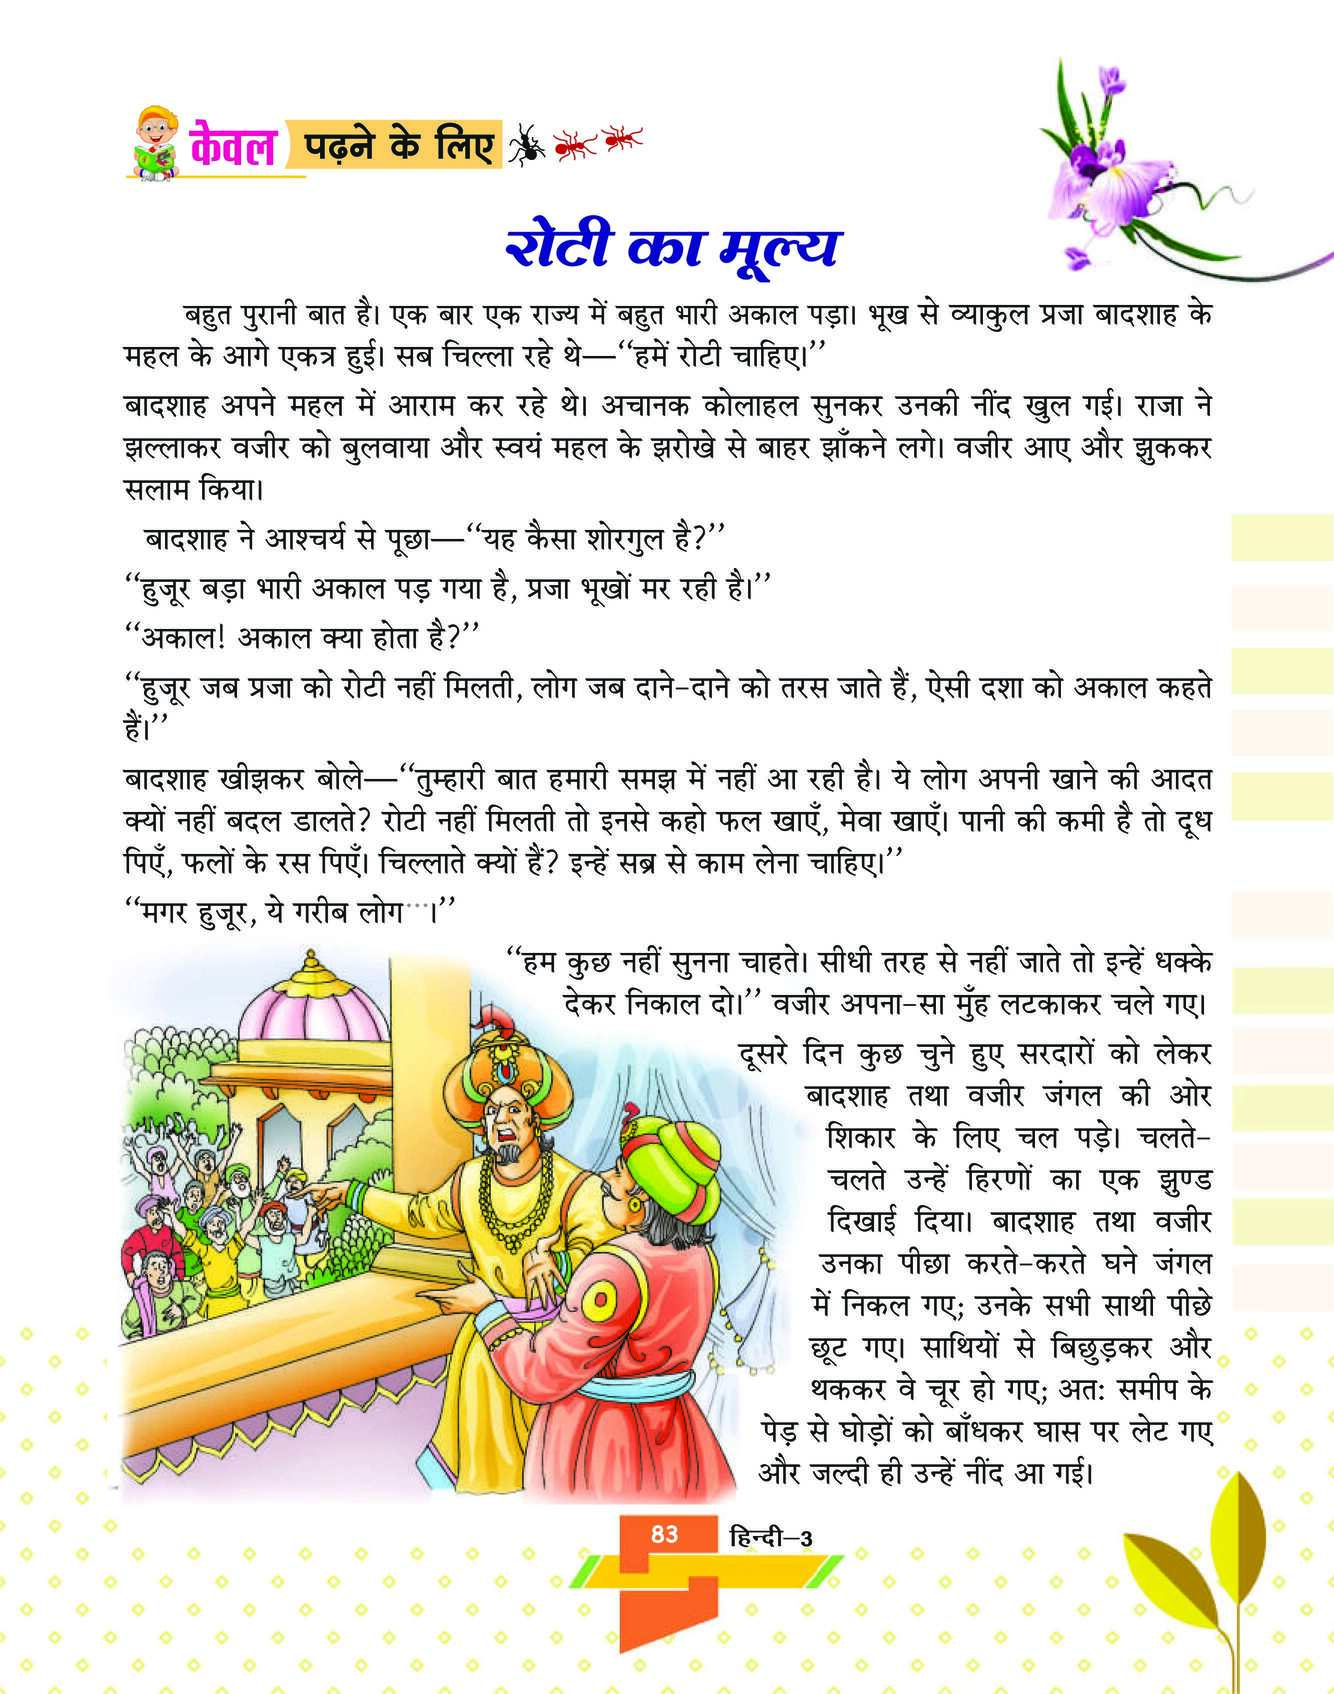 केवल पढ़ने के लिए
रोटी का मूल्य
बहुत पुरानी बात है। एक बार एक राज्य में बहुत भारी अकाल पड़ा। भूख से व्याकुल प्रजा बादशाह के
महल के आगे एकत्र हुई। सब चिल्ला रहे थे—‘‘हमें रोटी चाहिए।’’
बादशाह अपने महल में आराम कर रहे थे। अचानक कोलाहल सुनकर उनकी नींद खुल गई। राजा ने
झल्लाकर वजीर को बुलवाया और स्वयं महल के झरोखे से बाहर झाँकने लगे। वजीर आए और झुककर
सलाम किया।
बादशाह ने आश्चर्य से पूछा—‘‘यह कैसा शोरगुल है?’’
‘‘हुजूर बड़ा भारी अकाल पड़ गया है, प्रजा भूखों मर रही है।’’
‘‘अकाल! अकाल क्या होता है?’’
‘‘हुजूर जब प्रजा को रोटी नहीं मिलती, लोग जब दाने-दाने को तरस जाते हैं, ऐसी दशा को अकाल कहते
हैं।’’
बादशाह खीझकर बोले—‘‘तुम्हारी बात हमारी समझ में नहीं आ रही है। ये लोग अपनी खाने की आदत
क्यों नहीं बदल डालते? रोटी नहीं मिलती तो इनसे कहो फल खाएँ, मेवा खाएँ। पानी की कमी है तो दूध
पिएँ, फलों के रस पिएँ। चिल्लाते क्यों हैं? इन्हें सब्र से काम लेना चाहिए।’’
‘‘मगर हुजूर, ये गरीब लोग···।’’
‘‘हम कुछ नहीं सुनना चाहते। सीधी तरह से नहीं जाते तो इन्हें धक्के
देकर निकाल दो।’’ वजीर अपना-सा मुँह लटकाकर चले गए।
दूसरे दिन कुछ चुने हुए सरदारों को लेकर
बादशाह तथा वजीर जंगल की ओर
शिकार के लिए चल पड़े। चलते-
चलते उन्हें हिरणों का एक झुण्ड
दिखाई दिया। बादशाह तथा वजीर
उनका पीछा करते-करते घने जंगल
में निकल गए; उनके सभी साथी पीछे
छूट गए। साथियों से बिछुड़कर और
थककर वे चूर हो गए; अत: समीप के
पेड़ से घोड़ों को बाँधकर घास पर लेट गए
और जल्दी ही उन्हें नींद आ गई।
83 हिन्दी–3